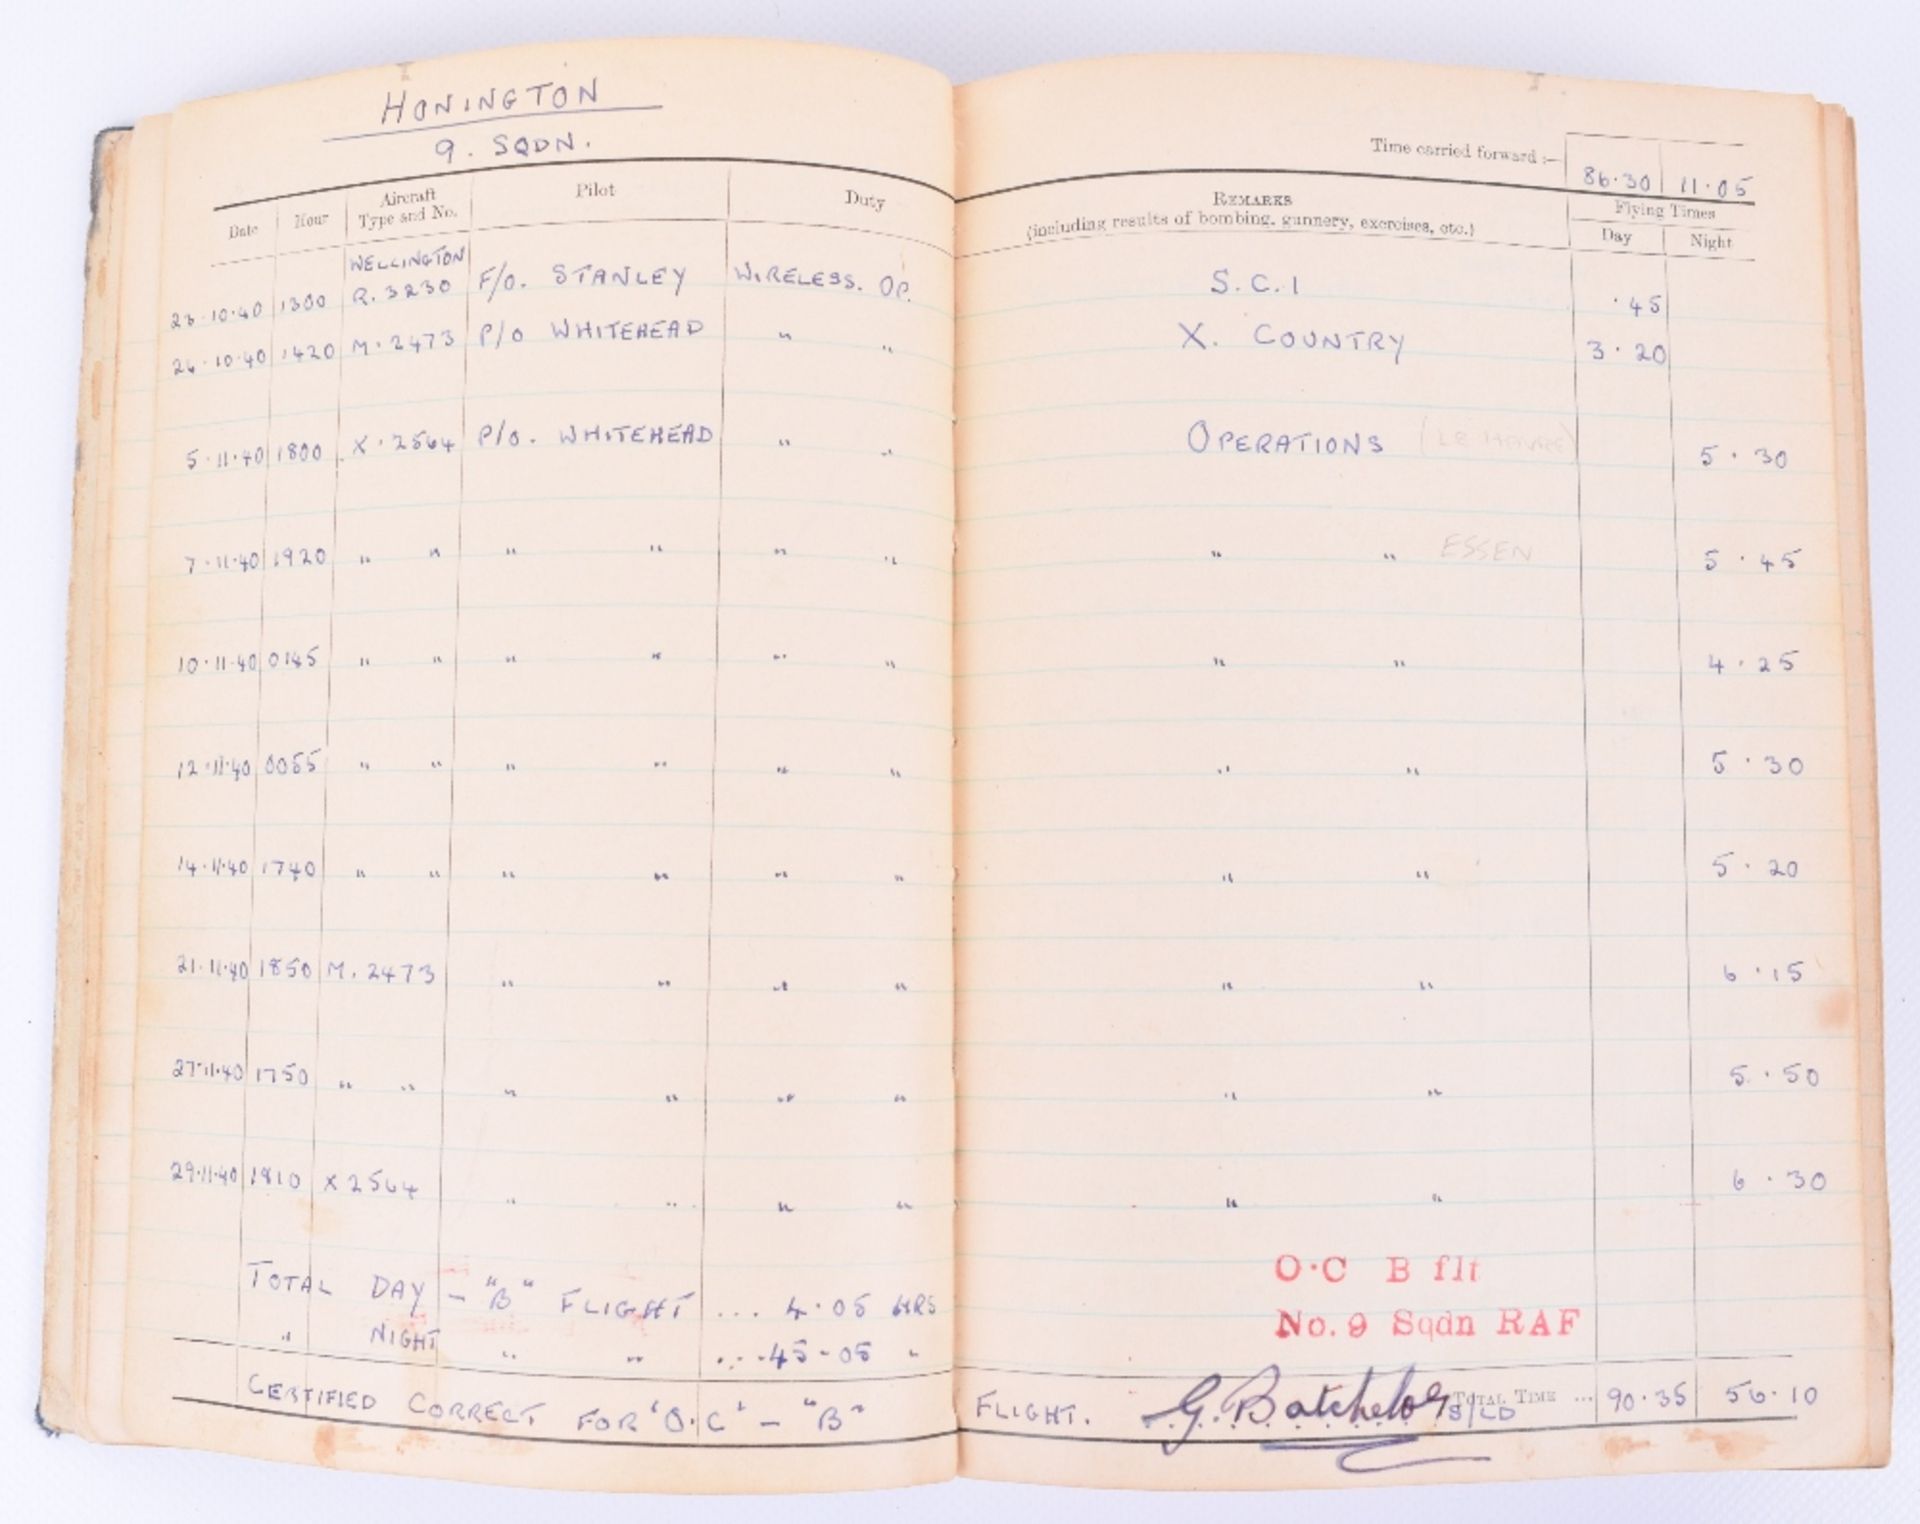 HONINGTON
9. SQDN.
Time carried forward :— 86.30 11.05
Date Hour Aircraft Type and No. Pilot Duty REMARKS (including results of bombing, gunnery, exercises, etc.) Flying Times Day Night
WELLINGTON
23.10.40 1300 R.3230 F/O. STANLEY WIRELESS. OP. S.C.I .45
1420 M.2473 P/O WHITEHEAD " " X. COUNTRY 3.20
5.11.40 1800 X.2564 P/O. WHITEHEAD " " OPERATIONS 5.30
7.11.40 1920 " " " " " " " " ESSEN 5.45
10.11.40 0145 " " " " " " " " 4.25
12.11.40 0055 " " " " " " " " 5.30
14.11.40 1740 " " " " " " " " 5.20
21.11.40 1850 M.2473 " " " " " " 6.15
27.11.40 1750 " " " " " " " " 5.50
29.11.40 1810 X2564 " " " " " " 6.30
TOTAL DAY - "B" FLIGHT ... 4.05 HRS
" NIGHT " " .... 45-05 "
O.C B flt
No. 9 Sqdn RAF
TOTAL TIME ... 90.35 56.10
CERTIFIED CORRECT FOR 'O.C' - "B" FLIGHT. G. Batchelor S/LD